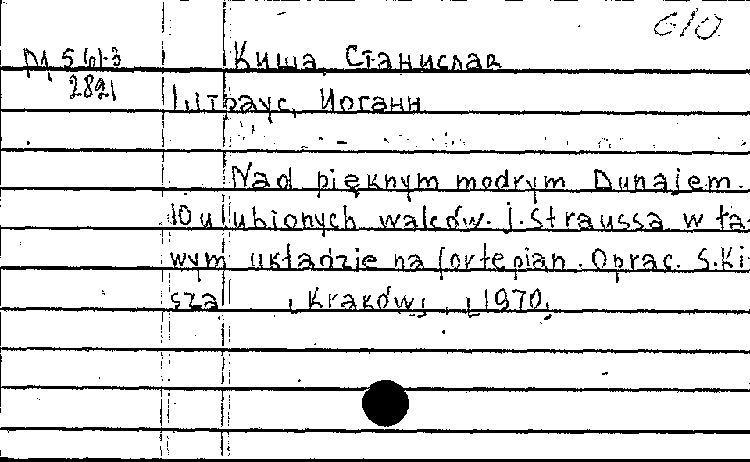 б/о
М 561-3 Киша, Станислав
2821
Штраус, Иоганн
Nad pięknym modrym Dunajem.
10 ulubionych walców J. Straussa w łat
wym układzie na fortepian. Oprac. S. Ki
sza [Kraków], [1970]